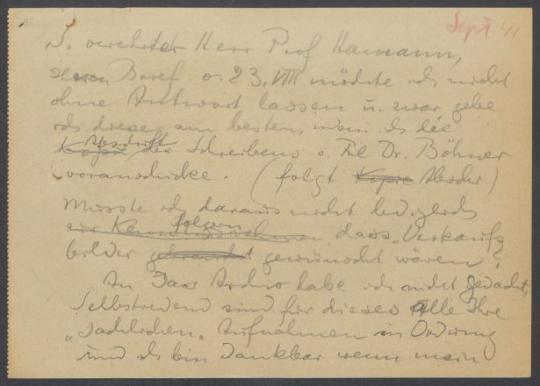 Sept 41
S. verehrter Herr Prof Hamann,
Ihren Brief v. 23. VIII möchte ich nicht
ohne Antwort lassen u. zwar gebe
ich diese am besten, indem ich die
Kopie Abschrift des Schreibens v. Frl Dr. Böhner
vorausschicke. (folgt Kopie Abschr)
Musste ich daraus nicht lediglich
folgern, dass Verkaufs
bilder gewünscht wären?
An Ihr Archiv habe ich nicht gedacht,
Selbstredend sind für dieses alle Ihre
"sachlichen" Aufnahmen in Ordnung
und ich bin dankbar wenn mein